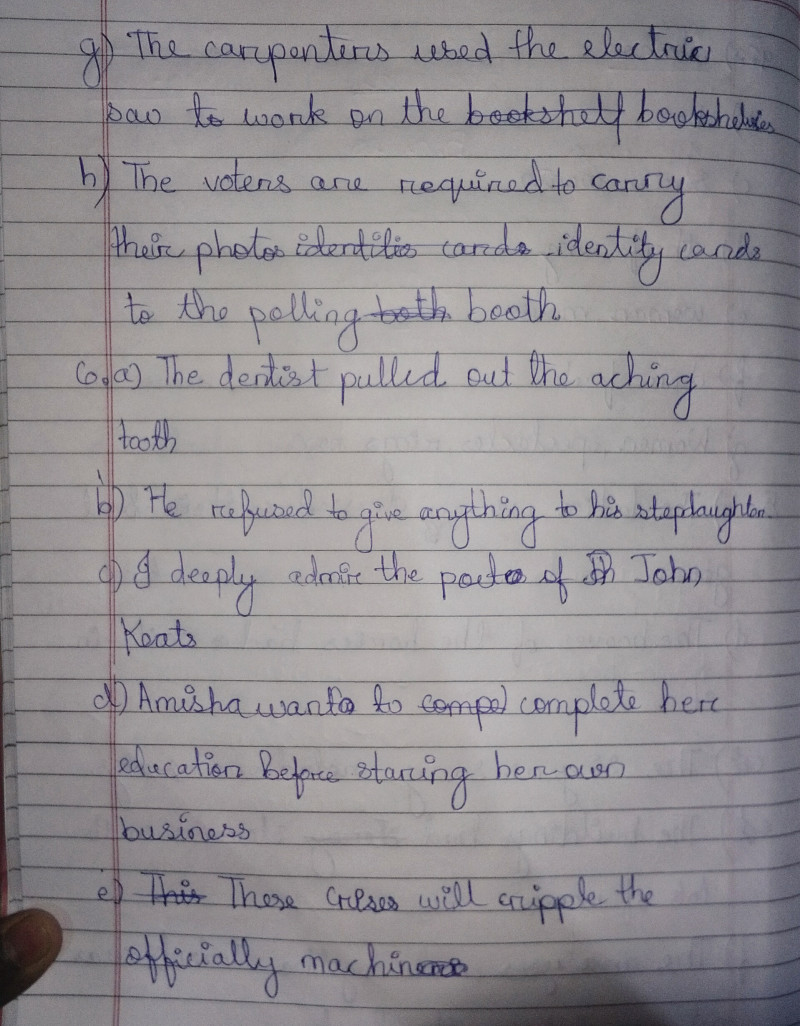 g) The carpenters used the electric
saw to work on the bookshelf bookshelves
h) The voters are required to carry
their photos identitis cards identity cards
to the polling both booth
6. a) The dentist pulled out the aching
tooth
b) He refused to give anything to his stepdaughter.
c) I deeply admire the poet of John
Keats
d) Amisha wants to compel complete here
education before staring her own
business
e) This These crises will cripple the
officially machin